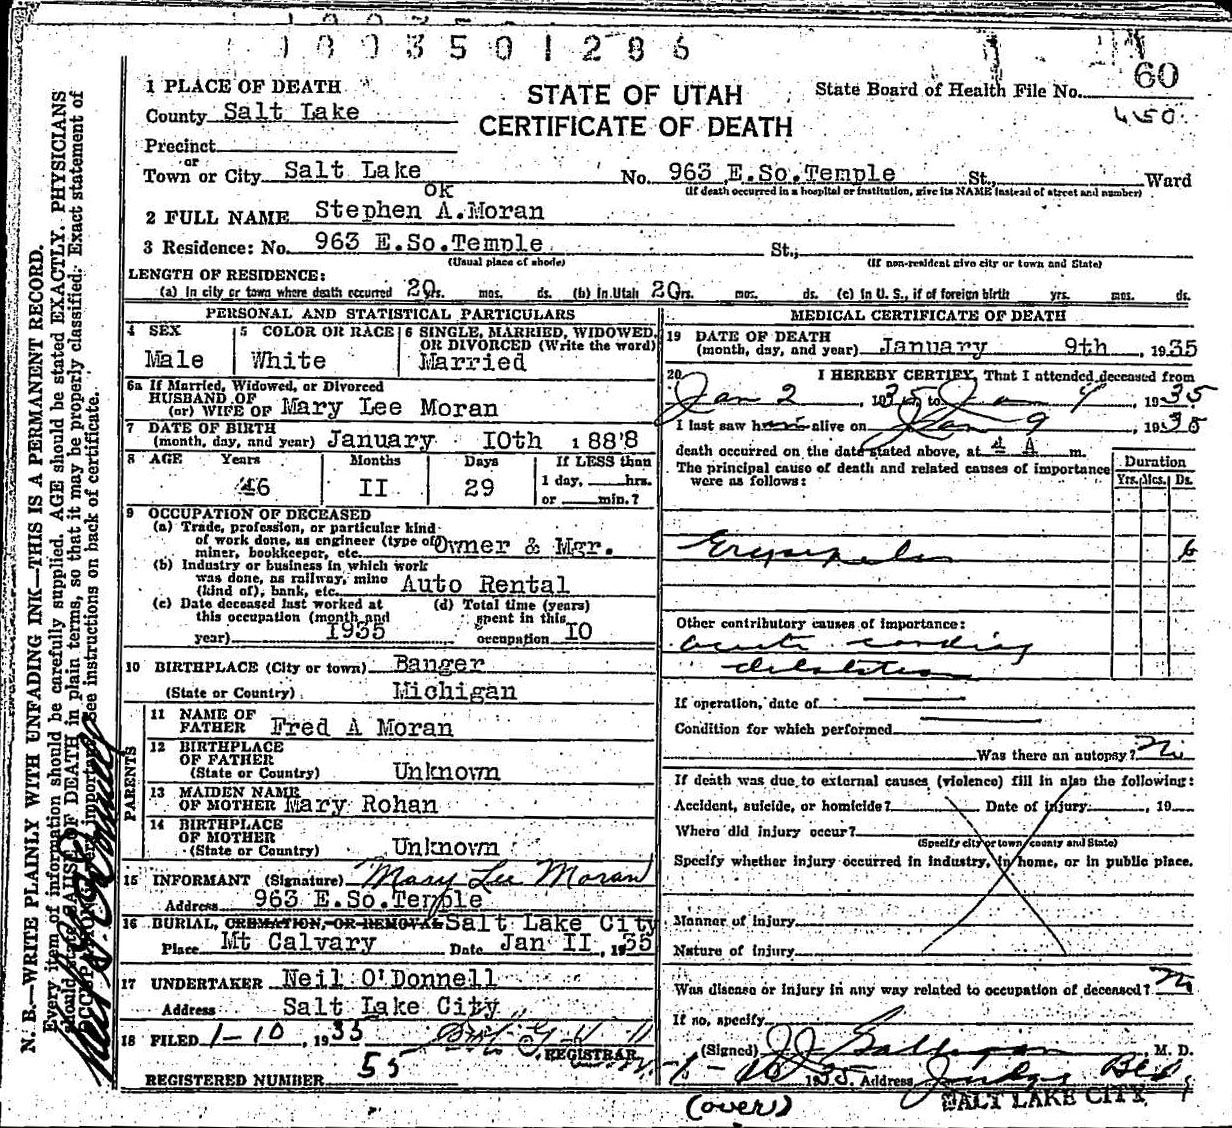 1003501286
1 PLACE OF DEATH
STATE OF UTAH
CERTIFICATE OF DEATH
State Board of Health File No. 60
450
County Salt Lake
Precinct
or
Town or City Salt Lake No. 963 E.So.Temple St., Ward
(If death occurred in a hospital or institution, give its NAME instead of street and number)
OK
2 FULL NAME Stephen A.Moran
3 Residence: No. 963 E.So.Temple St.,
(Usual place of abode) (If non-resident give city or town and State)
LENGTH OF RESIDENCE:
(a) In city or town where death occurred 20 yrs. mos. ds. (b) In Utah 20 yrs. mos. ds. (c) In U. S., if of foreign birth yrs. mos. ds.
PERSONAL AND STATISTICAL PARTICULARS
4 SEX
Male
5 COLOR OR RACE
White
6 SINGLE, MARRIED, WIDOWED,
OR DIVORCED (Write the word)
Married
6a If Married, Widowed, or Divorced
HUSBAND OF
(or) WIFE OF Mary Lee Moran
7 DATE OF BIRTH
(month, day, and year) January 10th 1888
8 AGE Years Months Days If LESS than
46 II 29 1 day, hrs.
or min.?
9 OCCUPATION OF DECEASED
(a) Trade, profession, or particular kind
of work done, as engineer (type of)
miner, bookkeeper, etc. Owner & Mgr.
(b) Industry or business in which work
was done, as railway, mine
(kind of), bank, etc. Auto Rental
(c) Date deceased last worked at
this occupation (month and
year) 1935
(d) Total time (years)
spent in this
occupation 10
10 BIRTHPLACE (City or town) Banger
(State or Country) Michigan
PARENTS
11 NAME OF
FATHER Fred A Moran
12 BIRTHPLACE
OF FATHER
(State or Country) Unknown
13 MAIDEN NAME
OF MOTHER Mary Rohan
14 BIRTHPLACE
OF MOTHER
(State or Country) Unknown
15 INFORMANT (Signature) Mary Lee Moran
Address 963 E.So.Temple
16 BURIAL, CREMATION, OR REMOVAL Salt Lake City
Place Mt Calvary Date Jan II, 1935
17 UNDERTAKER Neil O'Donnell
Address Salt Lake City
18 FILED 1-10, 1935
REGISTRAR
REGISTERED NUMBER 55
MEDICAL CERTIFICATE OF DEATH
19 DATE OF DEATH
(month, day, and year) January 9th, 1935
20 I HEREBY CERTIFY, That I attended deceased from
Jan 2, 1935, to Jan 9, 1935
I last saw him alive on Jan 9, 1935
death occurred on the date stated above, at 4 A m.
The principal cause of death and related causes of importance
were as follows:
Duration
Yrs. Mos. Ds.
Erysipelas 6
Other contributory causes of importance:
acute cardiac
dilatation
If operation, date of
Condition for which performed
Was there an autopsy? No
If death was due to external causes (violence) fill in also the following:
Accident, suicide, or homicide? Date of injury , 19
Where did injury occur?
(Specify city or town, county and State)
Specify whether injury occurred in industry, in home, or in public place.
Manner of injury
Nature of injury
Was disease or injury in any way related to occupation of deceased? No
If no, specify
(Signed) J J Galligan M. D.
1935 Address Judge Bldg
SALT LAKE CITY
(over)
N. B.—WRITE PLAINLY WITH UNFADING INK—THIS IS A PERMANENT RECORD.
Every item of information should be carefully supplied. AGE should be stated EXACTLY. PHYSICIANS
should state CAUSE OF DEATH in plain terms, so that it may be properly classified. Exact statement of
OCCUPATION is very important. See instructions on back of certificate.